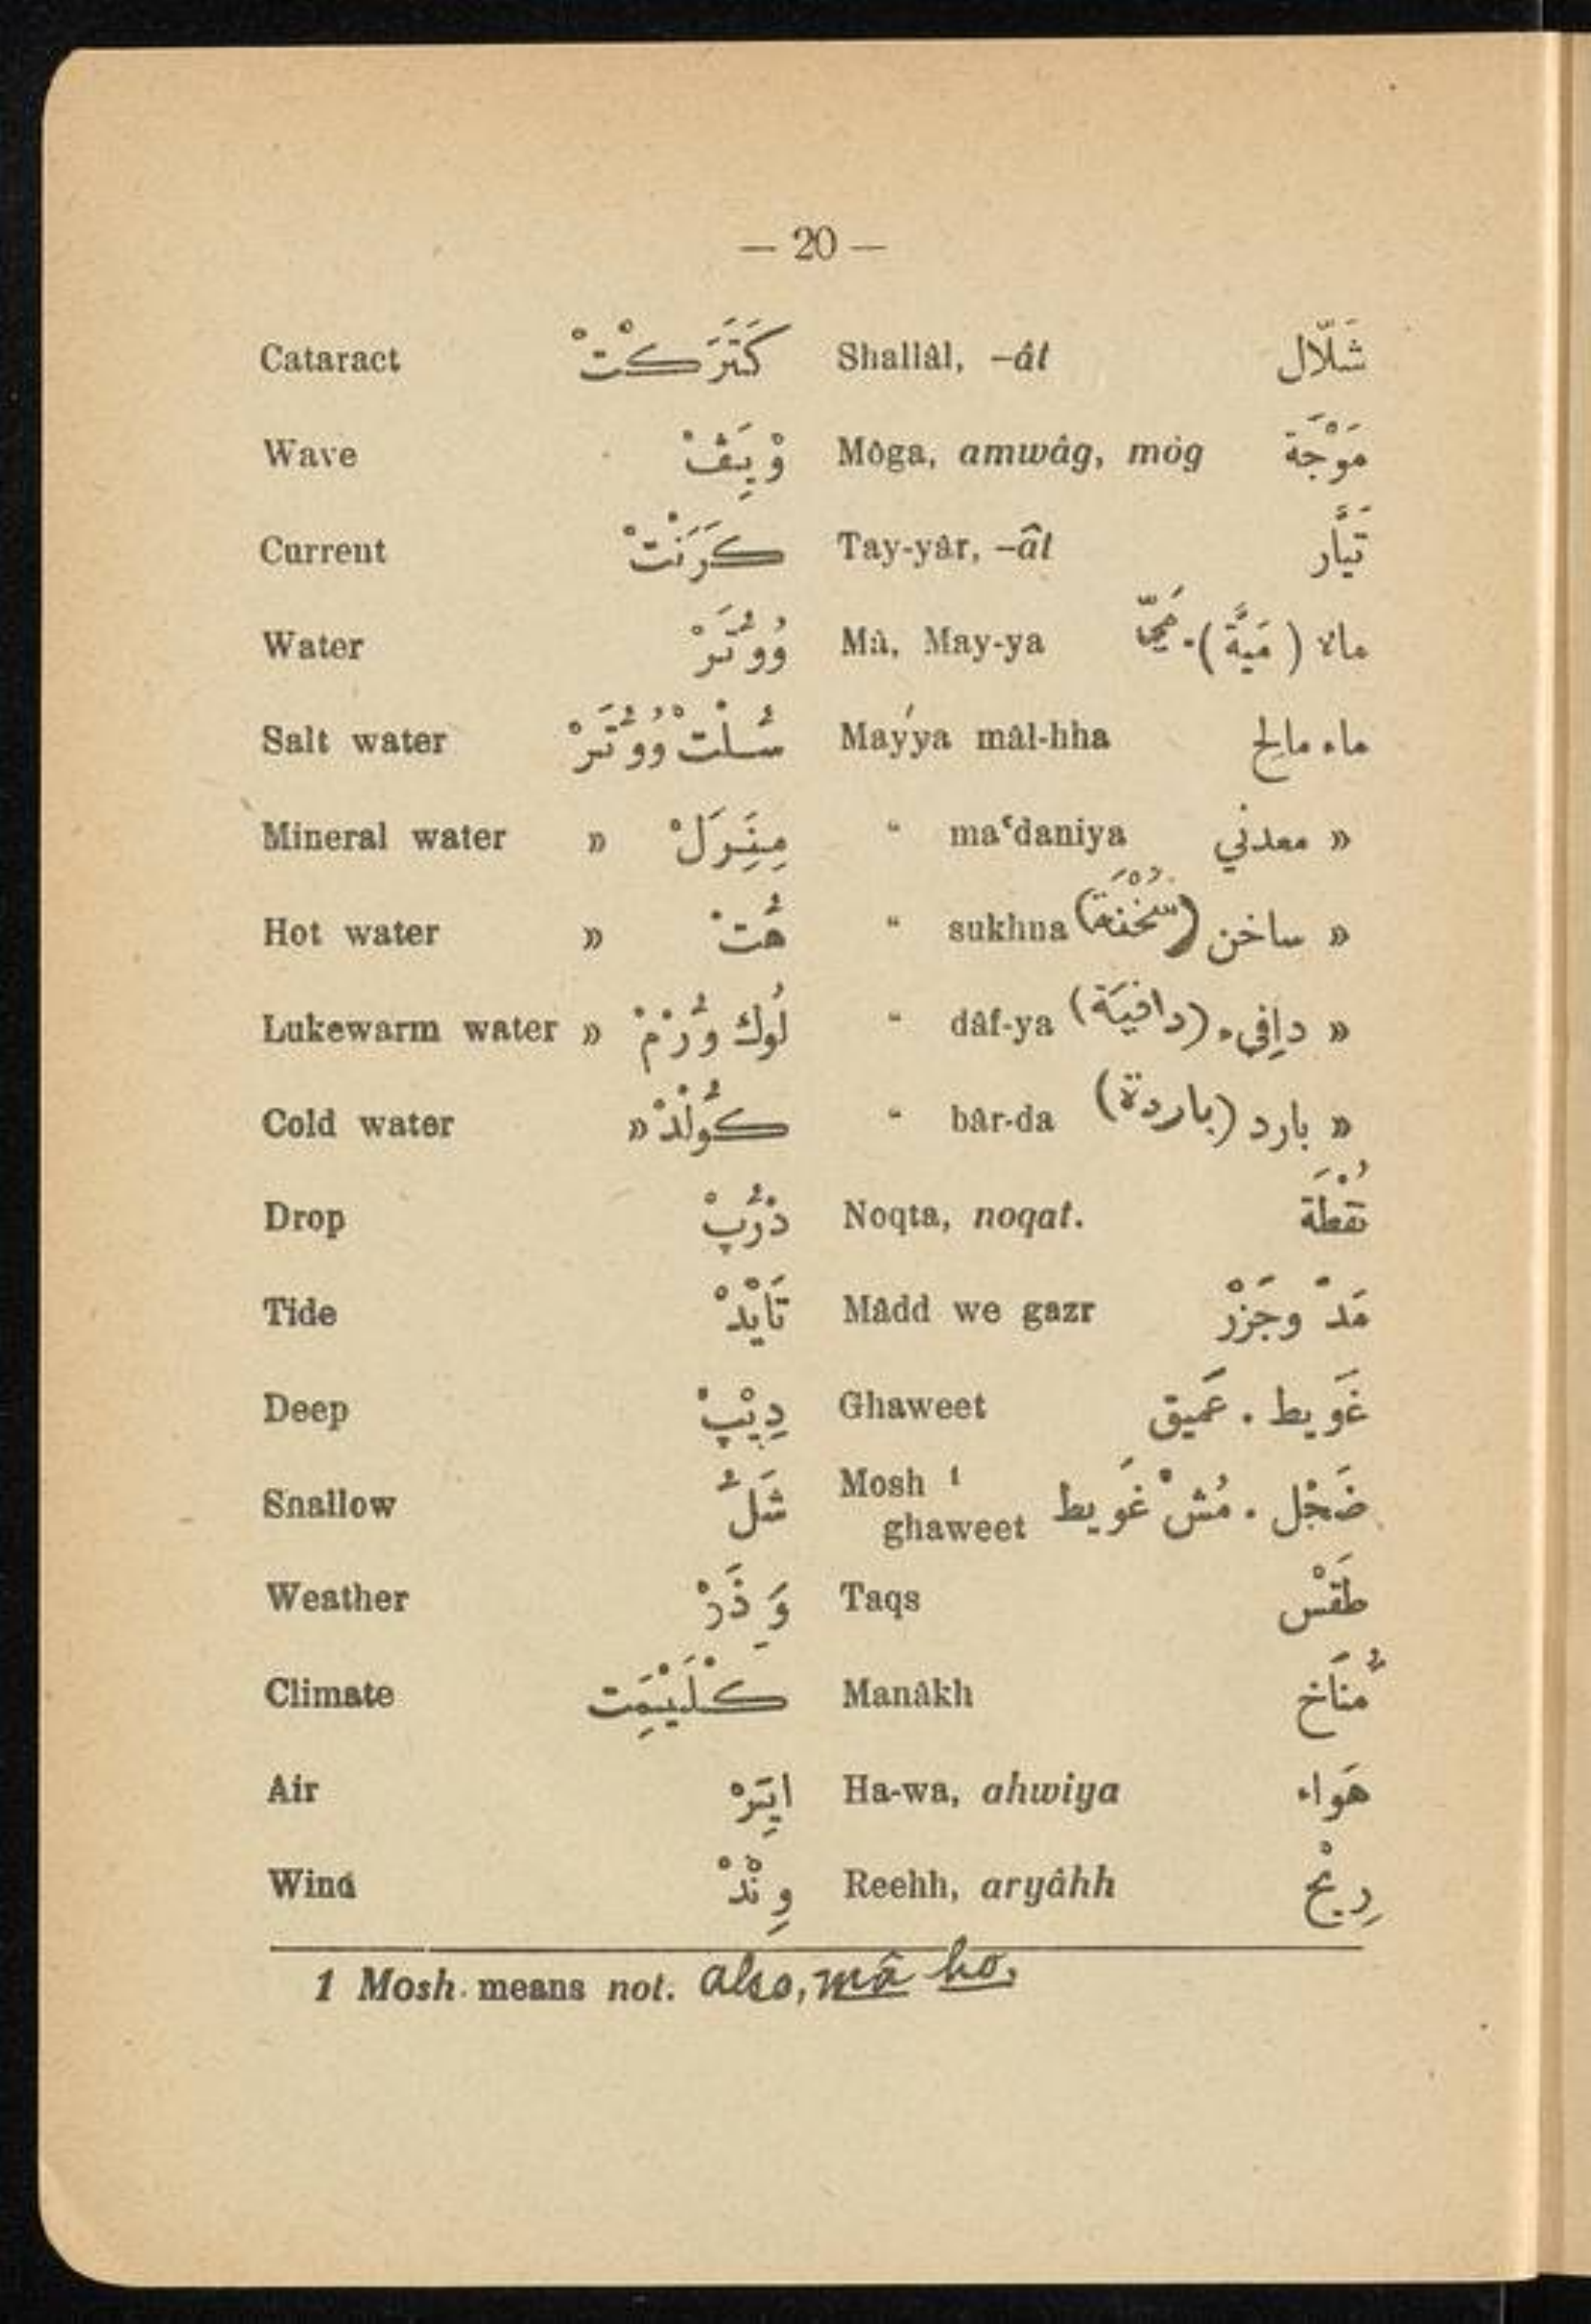 — 20 —
Cataract كَتَرَكْتْ Shallâl, –ât شَلَّال
Wave وْيِفْ Môga, amwâg, móg مَوْجَة
Current كَرَنْتْ Tay-yâr, –ât تَيَّار
Water وُوتَرْ Mâ, May-ya ماء ( مَيَّة ) .
Salt water سُلْتْ وُوتَرْ Mayya mâl-hha ماء مالِح
Mineral water » مِنِرَلْ “ maʿdaniya » معدني
Hot water » هُتْ “ sukhna » ساخن (سُخْنَة)
Lukewarm water » لُوك وُرْمْ “ dâf-ya » دافِيء (دافيَة)
Cold water » كُولْدْ “ bâr-da » بارد (باردة)
Drop دْرُپْ Noqta, noqat. نُقْطَة
Tide تَايْدْ Mâdd we gazr مَدّ وجَزْرْ
Deep دِيْپْ Ghaweet غَويط . عَميق
Snallow شَلُ Mosh 1
ghaweet ضَحْل . مُشْ غَويط
Weather وَذَرْ Taqs طَقْس
Climate كْلَيْمِت Manâkh مُنَاخ
Air ايَرْ Ha-wa, ahwiya هَواء
Wind وِنْدْ Reehh, aryâhh رِيْح
1 Mosh means not. also, mâ ho.